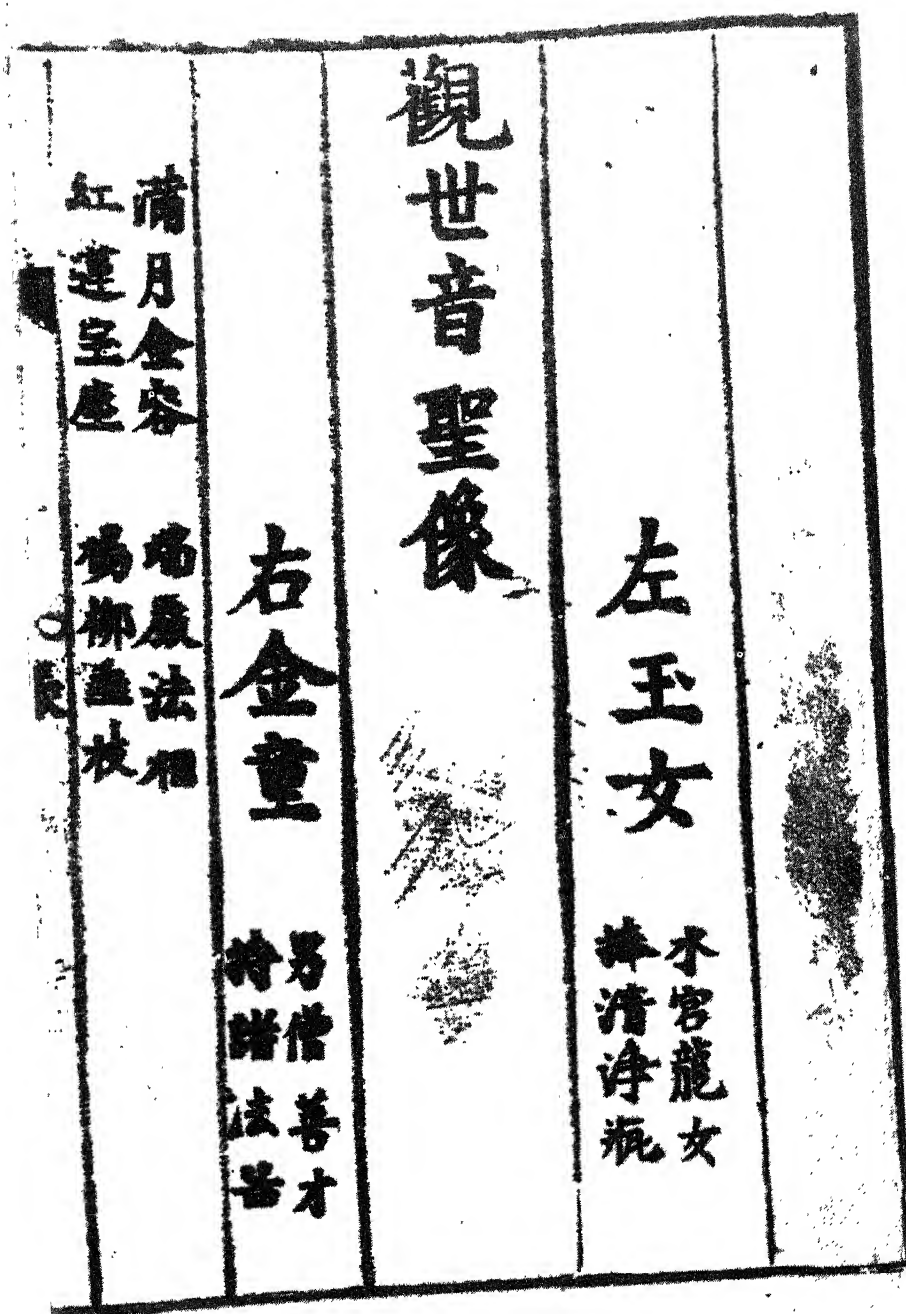 左玉女
水宮龍女
捧清淨瓶
觀世音聖像
右金童
男僧善才
持諸法器
滿月金容
瑞嚴法相
紅蓮宝座
楊柳垂枝